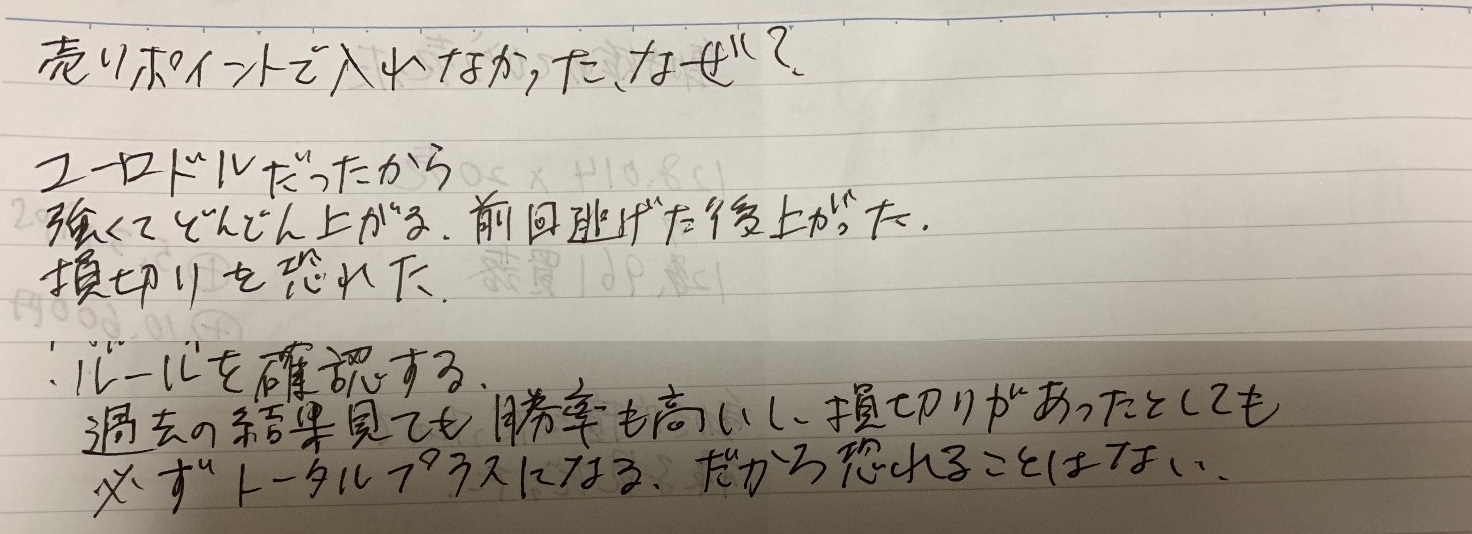 売りポイントで入れなかった、なぜ?
ユーロドルだったから
強くてどんどん上がる、前回逃げた後上がった.
損切りを恐れた.
・ルールを確認する、
過去の結果見ても勝率も高いし、損切りがあったとしても
必ずトータルプラスになる、だから恐れることはない、